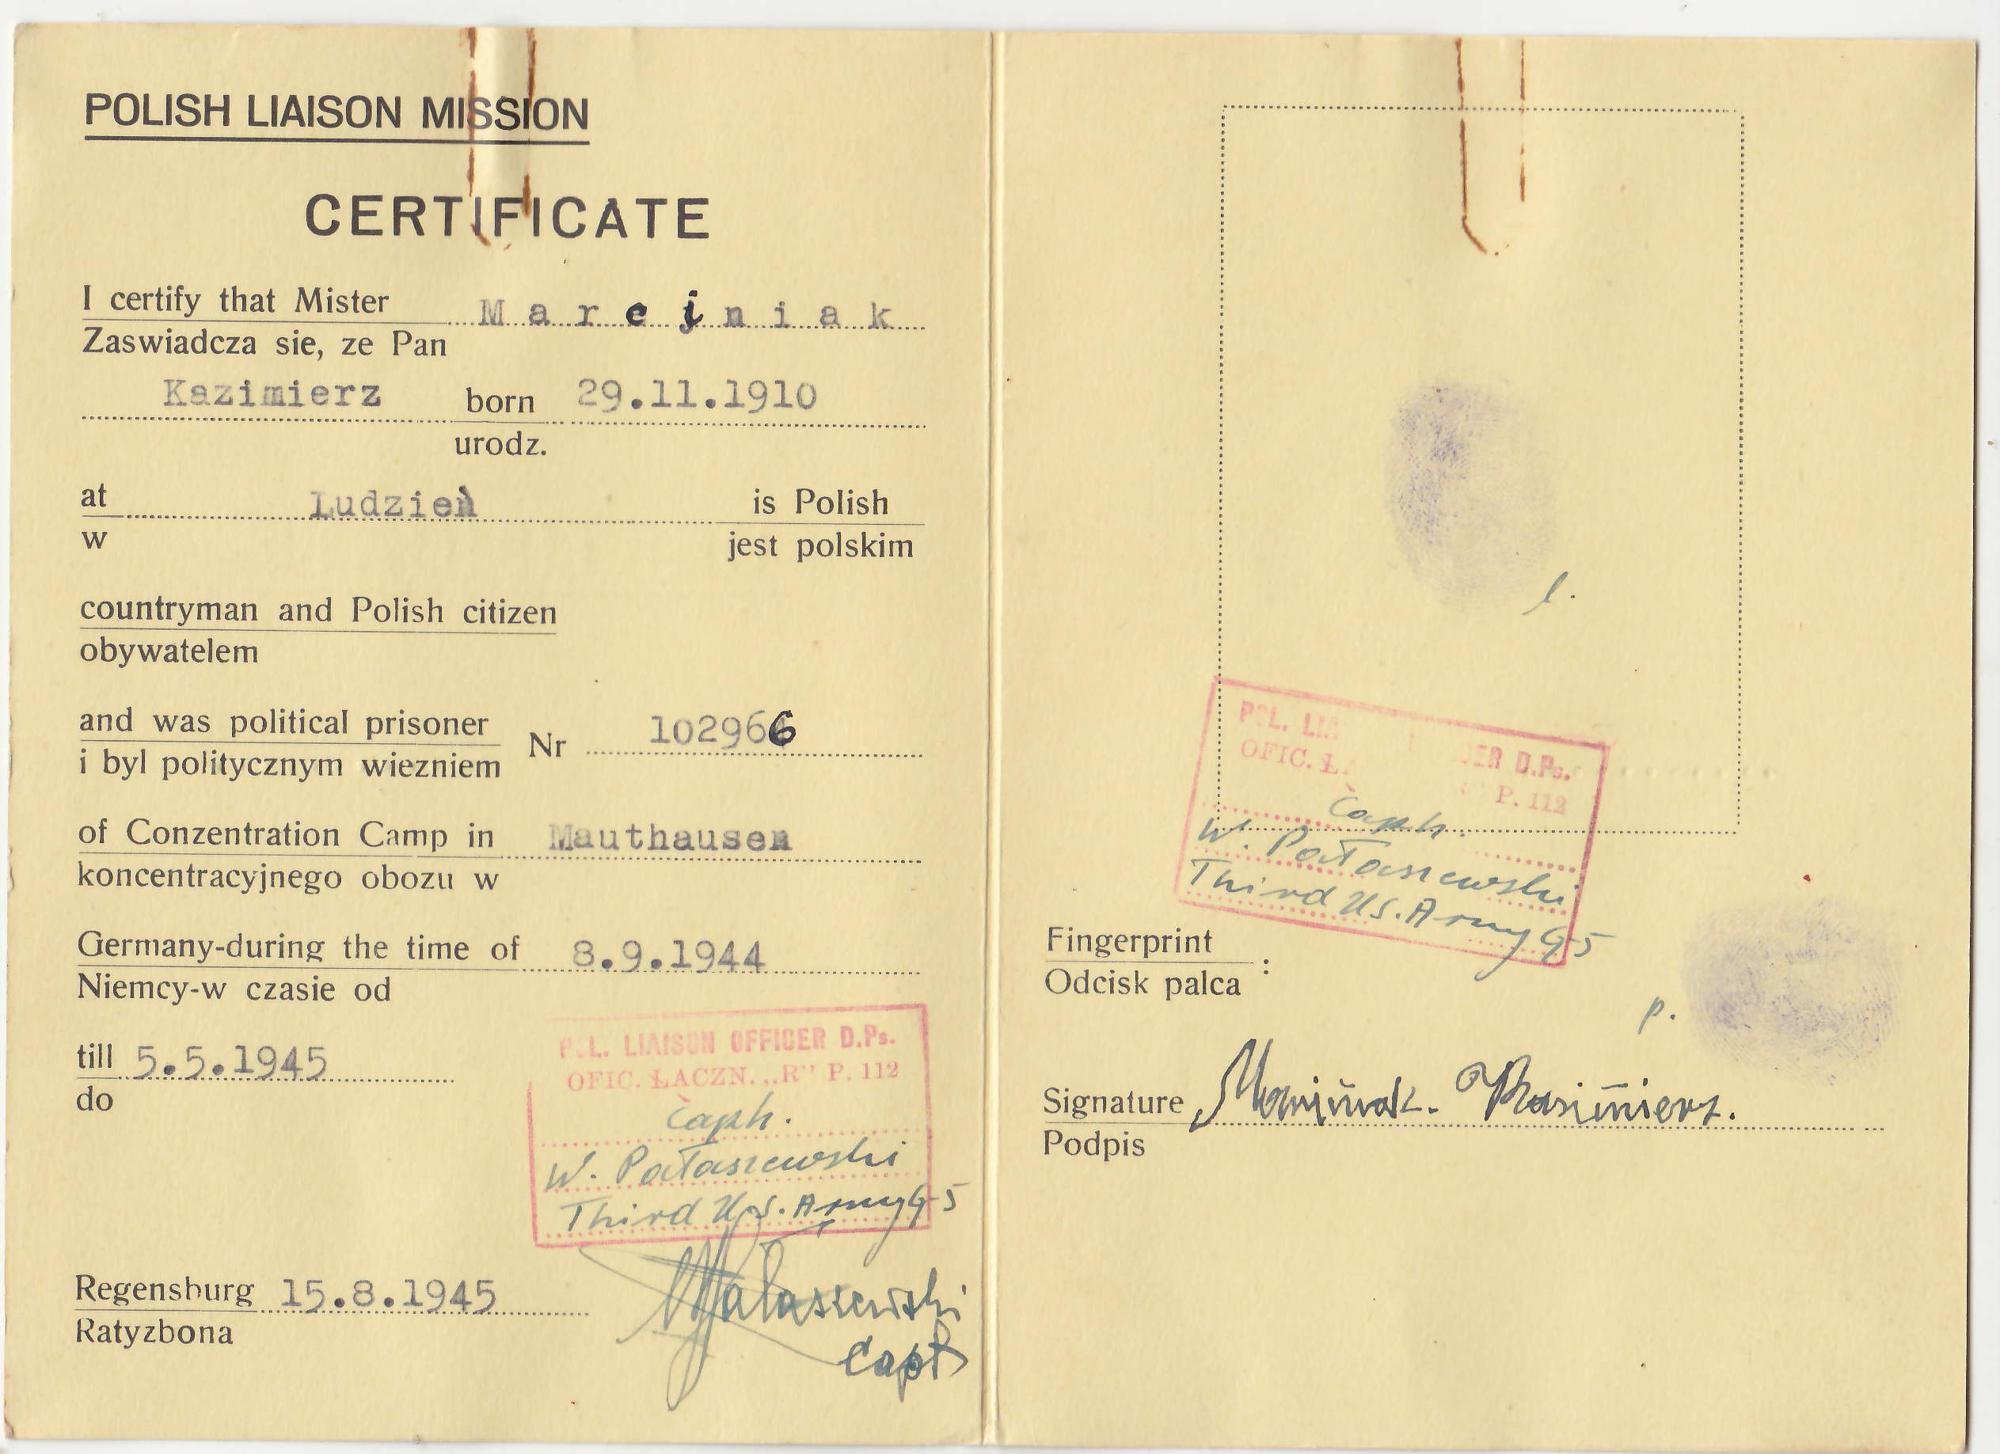 POLISH LIAISON MISSION
CERTIFICATE
I certify that Mister M a r c i n i a k
Zaswiadcza sie, ze Pan
Kazimierz born 29.11.1910
urodz.
at Ludzień is Polish
w jest polskim
countryman and Polish citizen
obywatelem
and was political prisoner Nr 102966
i byl politycznym wiezniem
of Conzentration Camp in Mauthausen
koncentracyjnego obozu w
Germany-during the time of 8.9.1944
Niemcy-w czasie od
till 5.5.1945
do
POL. LIAISON OFFICER D.Ps.
OFIC. ŁACZN. „R" P. 112
W. Pałaszewski
Third U.S. Army G-5
Regensburg 15.8.1945
Ratyzbona
Pałaszewski
Capt
l.
POL. LIA ER D.Ps.
OFIC. ŁA P. 112
W. Pałaszewski
Third U.S. Army G-5
Fingerprint :
Odcisk palca
p.
Signature Marciniak. Kazimierz.
Podpis